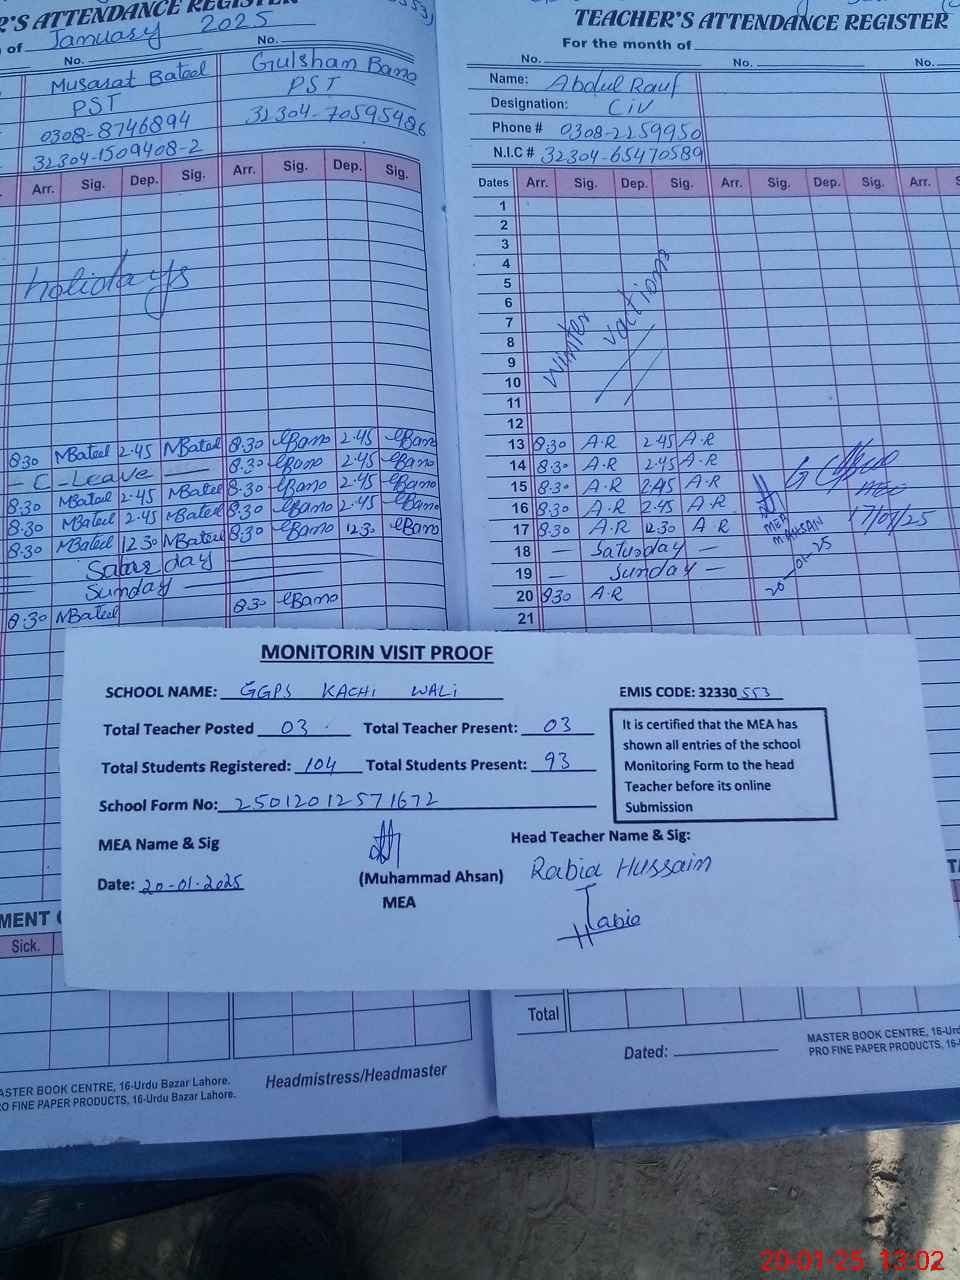 'S ATTENDANCE REGISTER
of January 2025
No. No.
Musarat Bateel Gulshan Bano
PST PST
0308-8746894 32304-70595486
32304-1509408-2
Arr. Sig. Dep. Sig. Arr. Sig. Dep. Sig.
holidays
8:30 MBateel 2.45 MBateel 8.30 Bano 2.45 Bano
- C - Leave 8.30 Bano 2.45 Bano
8:30 MBateel 2.45 MBateel 8.30 Bano 2.45 Bano
8:30 MBateel 2.45 MBateel 8.30 Bano 2.45 Bano
8:30 MBateel 12.30 MBateel 8:30 Bano 12.30 Bano
Saturday
Sunday
8:30 MBateel 8:30 Bano
TEACHER'S ATTENDANCE REGISTER
For the month of
No. No. No.
Name: Abdul Rauf
Designation: Civ
Phone # 0308-2259950
N.I.C # 32304-65470589
Dates Arr. Sig. Dep. Sig. Arr. Sig. Dep. Sig. Arr.
1
2
3
4
5
6
7
8
9
10
11
12
Winter vactions
13 8:30 A.R 2.45 A.R
14 8.30 A.R 2.45 A.R
15 8.30 A.R 2.45 A.R
16 8.30 A.R 2.45 A.R
17 8.30 A.R 12.30 A R
18 — Saturday —
19 — Sunday —
20 8:30 A.R
21
MEA
MAHSAN
20-01-25
17/01/25
MONITORIN VISIT PROOF
SCHOOL NAME: GGPS KACHI WALI EMIS CODE: 32330553
Total Teacher Posted 03 Total Teacher Present: 03
Total Students Registered: 104 Total Students Present: 93
School Form No: 25012012571672
It is certified that the MEA has
shown all entries of the school
Monitoring Form to the head
Teacher before its online
Submission
MEA Name & Sig Head Teacher Name & Sig:
Date: 20-01-2025 (Muhammad Ahsan) Rabia Hussain
MEA
Rabia
MENT
Sick.
Total
Dated:
MASTER BOOK CENTRE, 16-Urd
PRO FINE PAPER PRODUCTS, 16-
ASTER BOOK CENTRE, 16-Urdu Bazar Lahore.
RO FINE PAPER PRODUCTS, 16-Urdu Bazar Lahore.
Headmistress/Headmaster
20-01-25 13:02